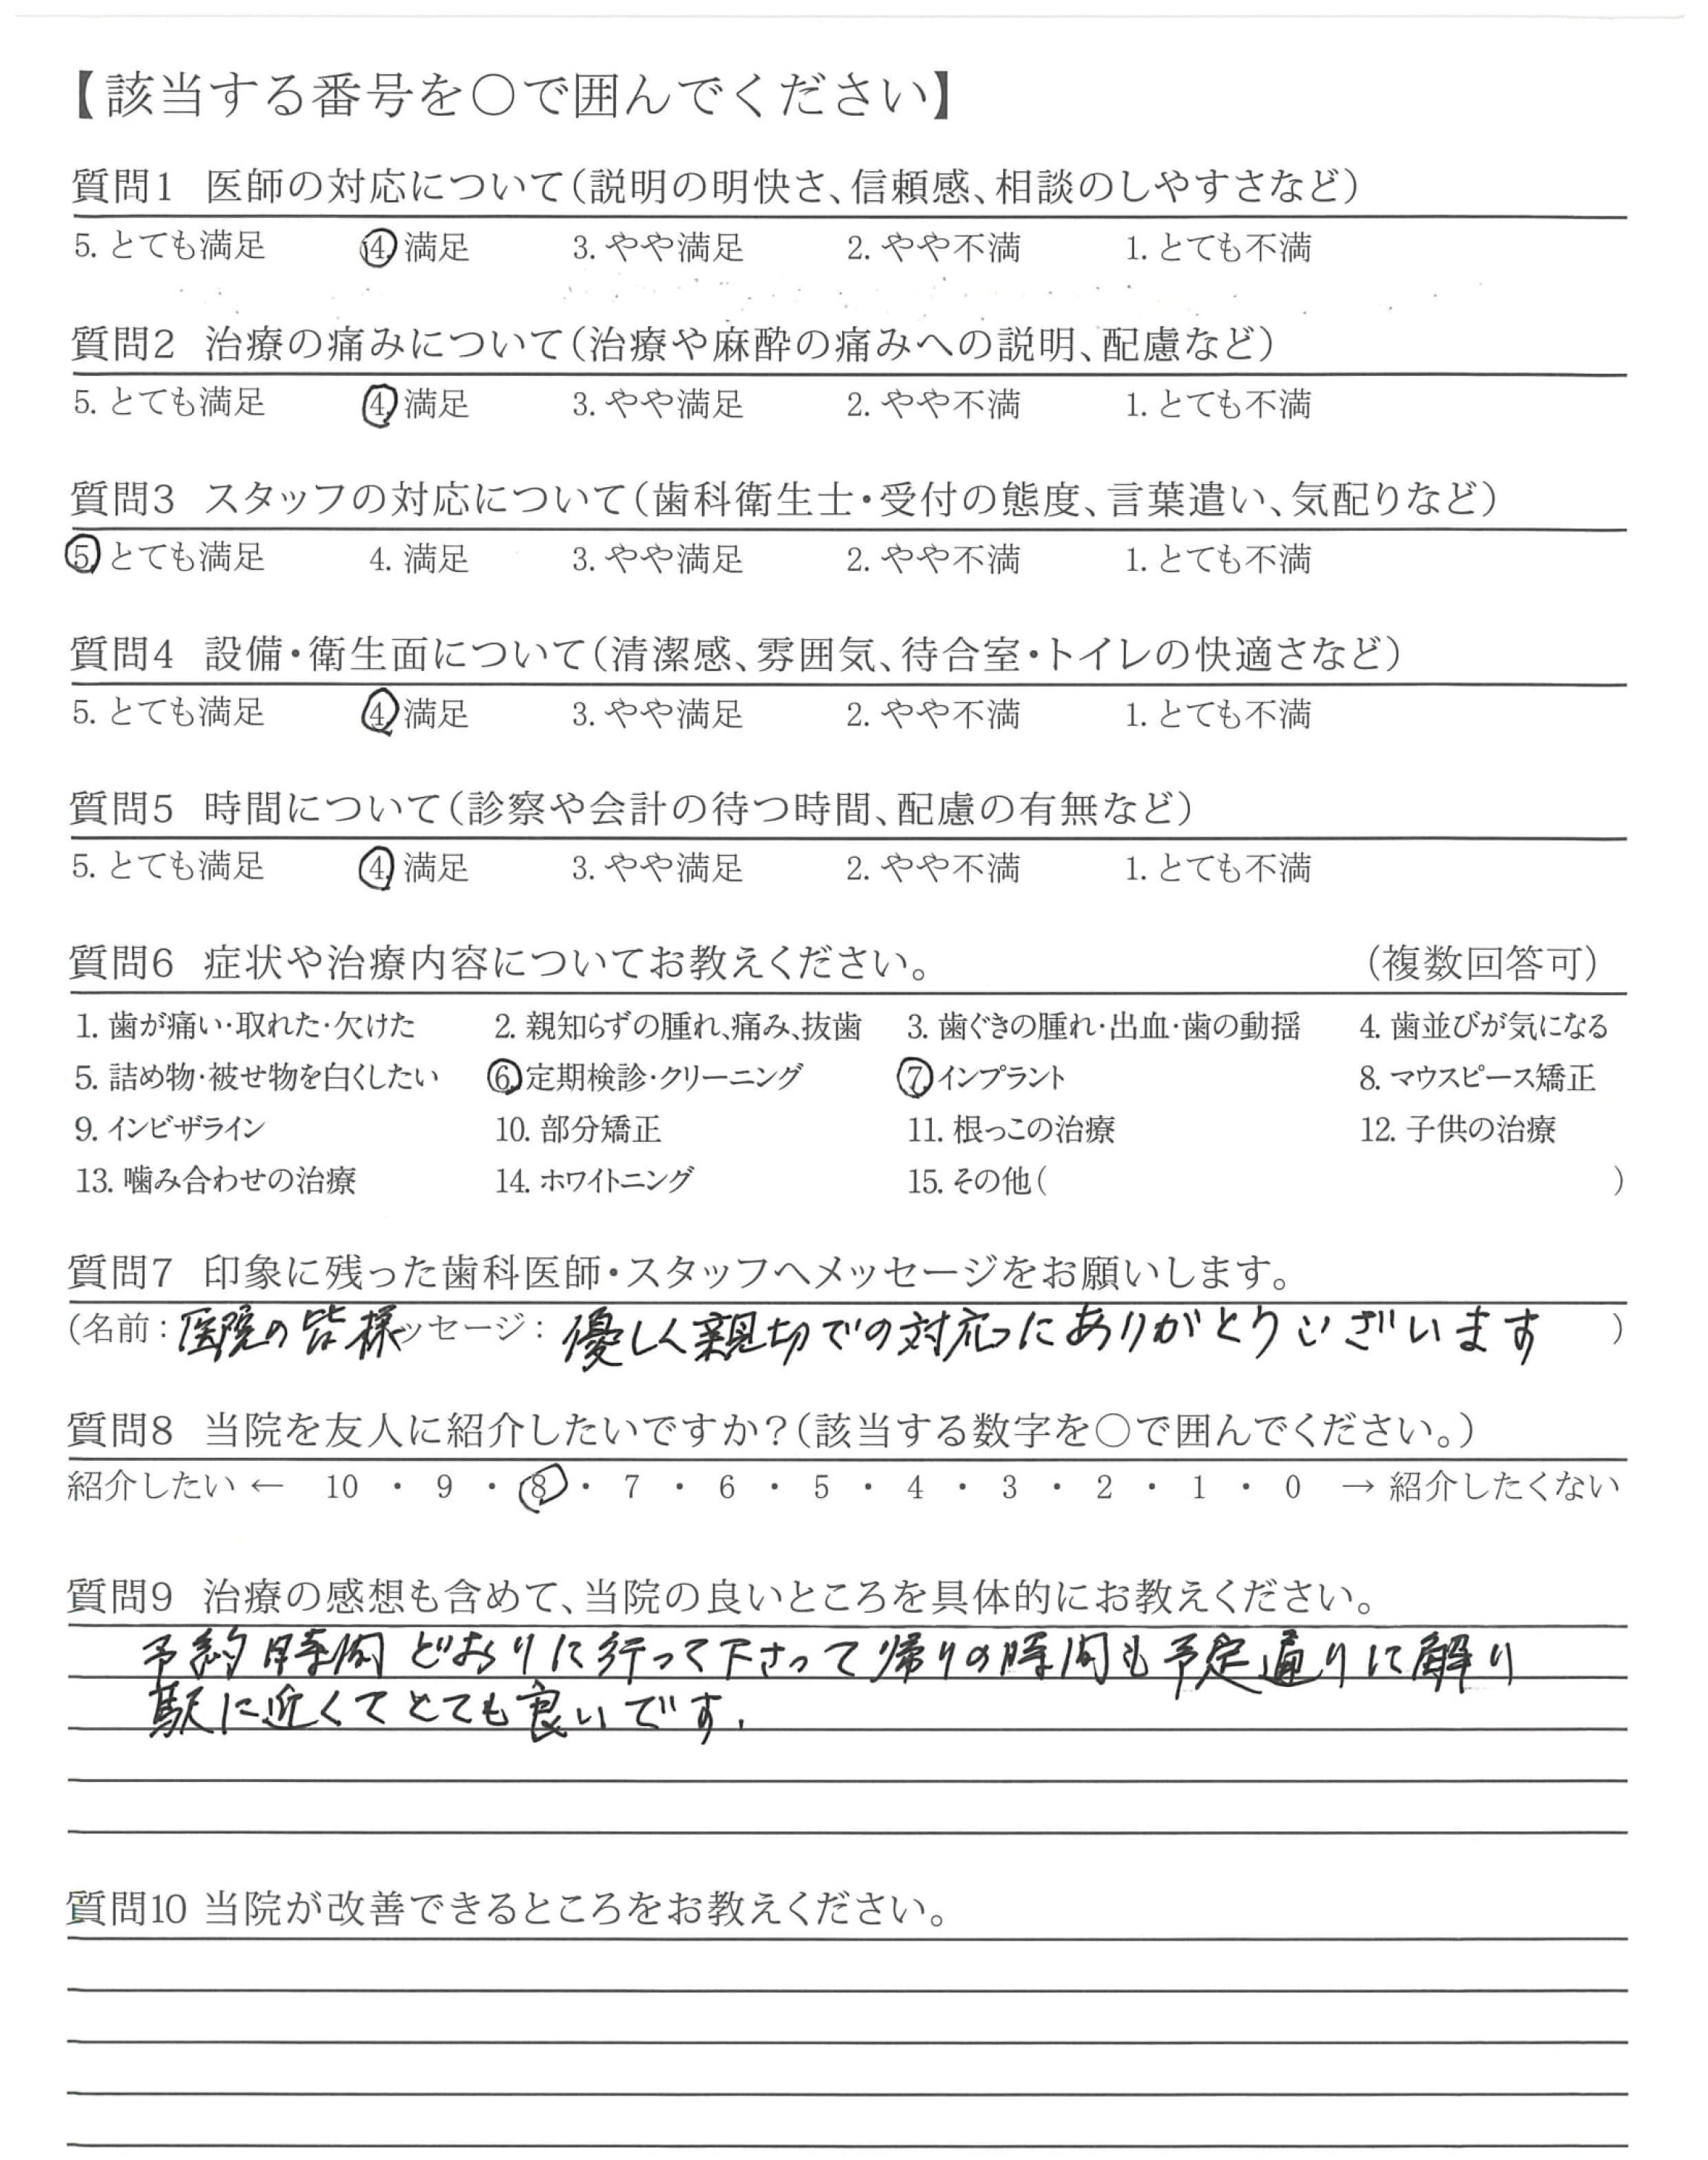 【該当する番号を○で囲んでください】
質問1 医師の対応について(説明の明快さ、信頼感、相談のしやすさなど)
5. とても満足 4. 満足 3. やや満足 2. やや不満 1. とても不満
質問2 治療の痛みについて(治療や麻酔の痛みへの説明、配慮など)
5. とても満足 4. 満足 3. やや満足 2. やや不満 1. とても不満
質問3 スタッフの対応について(歯科衛生士・受付の態度、言葉遣い、気配りなど)
5. とても満足 4. 満足 3. やや満足 2. やや不満 1. とても不満
質問4 設備・衛生面について(清潔感、雰囲気、待合室・トイレの快適さなど)
5. とても満足 4. 満足 3. やや満足 2. やや不満 1. とても不満
質問5 時間について(診察や会計の待つ時間、配慮の有無など)
5. とても満足 4. 満足 3. やや満足 2. やや不満 1. とても不満
質問6 症状や治療内容についてお教えください。 (複数回答可)
1. 歯が痛い・取れた・欠けた 2. 親知らずの腫れ、痛み、抜歯 3. 歯ぐきの腫れ・出血・歯の動揺 4. 歯並びが気になる
5. 詰め物・被せ物を白くしたい 6. 定期検診・クリーニング 7. インプラント 8. マウスピース矯正
9. インビザライン 10. 部分矯正 11. 根っこの治療 12. 子供の治療
13. 噛み合わせの治療 14. ホワイトニング 15. その他( )
質問7 印象に残った歯科医師・スタッフへメッセージをお願いします。
(名前: 医院の皆様 ッセージ: 優しく親切での対応にありがとうございます )
質問8 当院を友人に紹介したいですか?(該当する数字を○で囲んでください。)
紹介したい ← 10 ・ 9 ・ 8 ・ 7 ・ 6 ・ 5 ・ 4 ・ 3 ・ 2 ・ 1 ・ 0 → 紹介したくない
質問9 治療の感想も含めて、当院の良いところを具体的にお教えください。
予約時間どおりに行って下さって帰りの時間も予定通りに解り
駅に近くてとても良いです.
質問10 当院が改善できるところをお教えください。